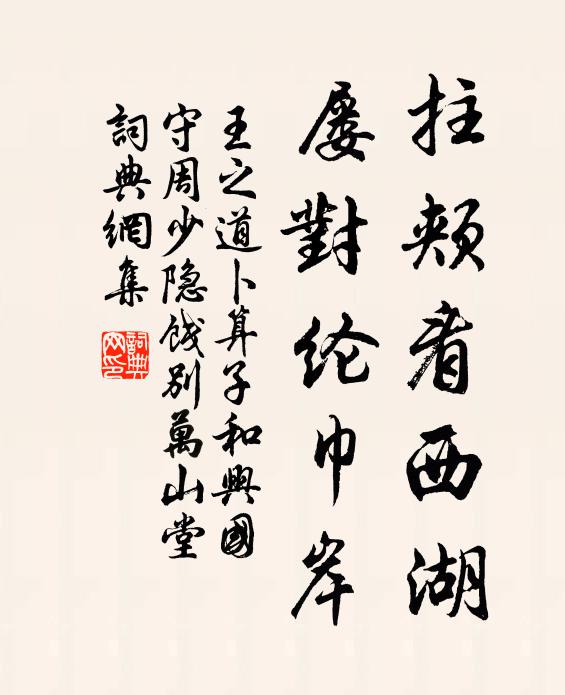 拄颊看西湖
屡對纶巾岸
王之道卜算子和興國
守周少隐餞别萬山堂
詞典網集
詞典网印